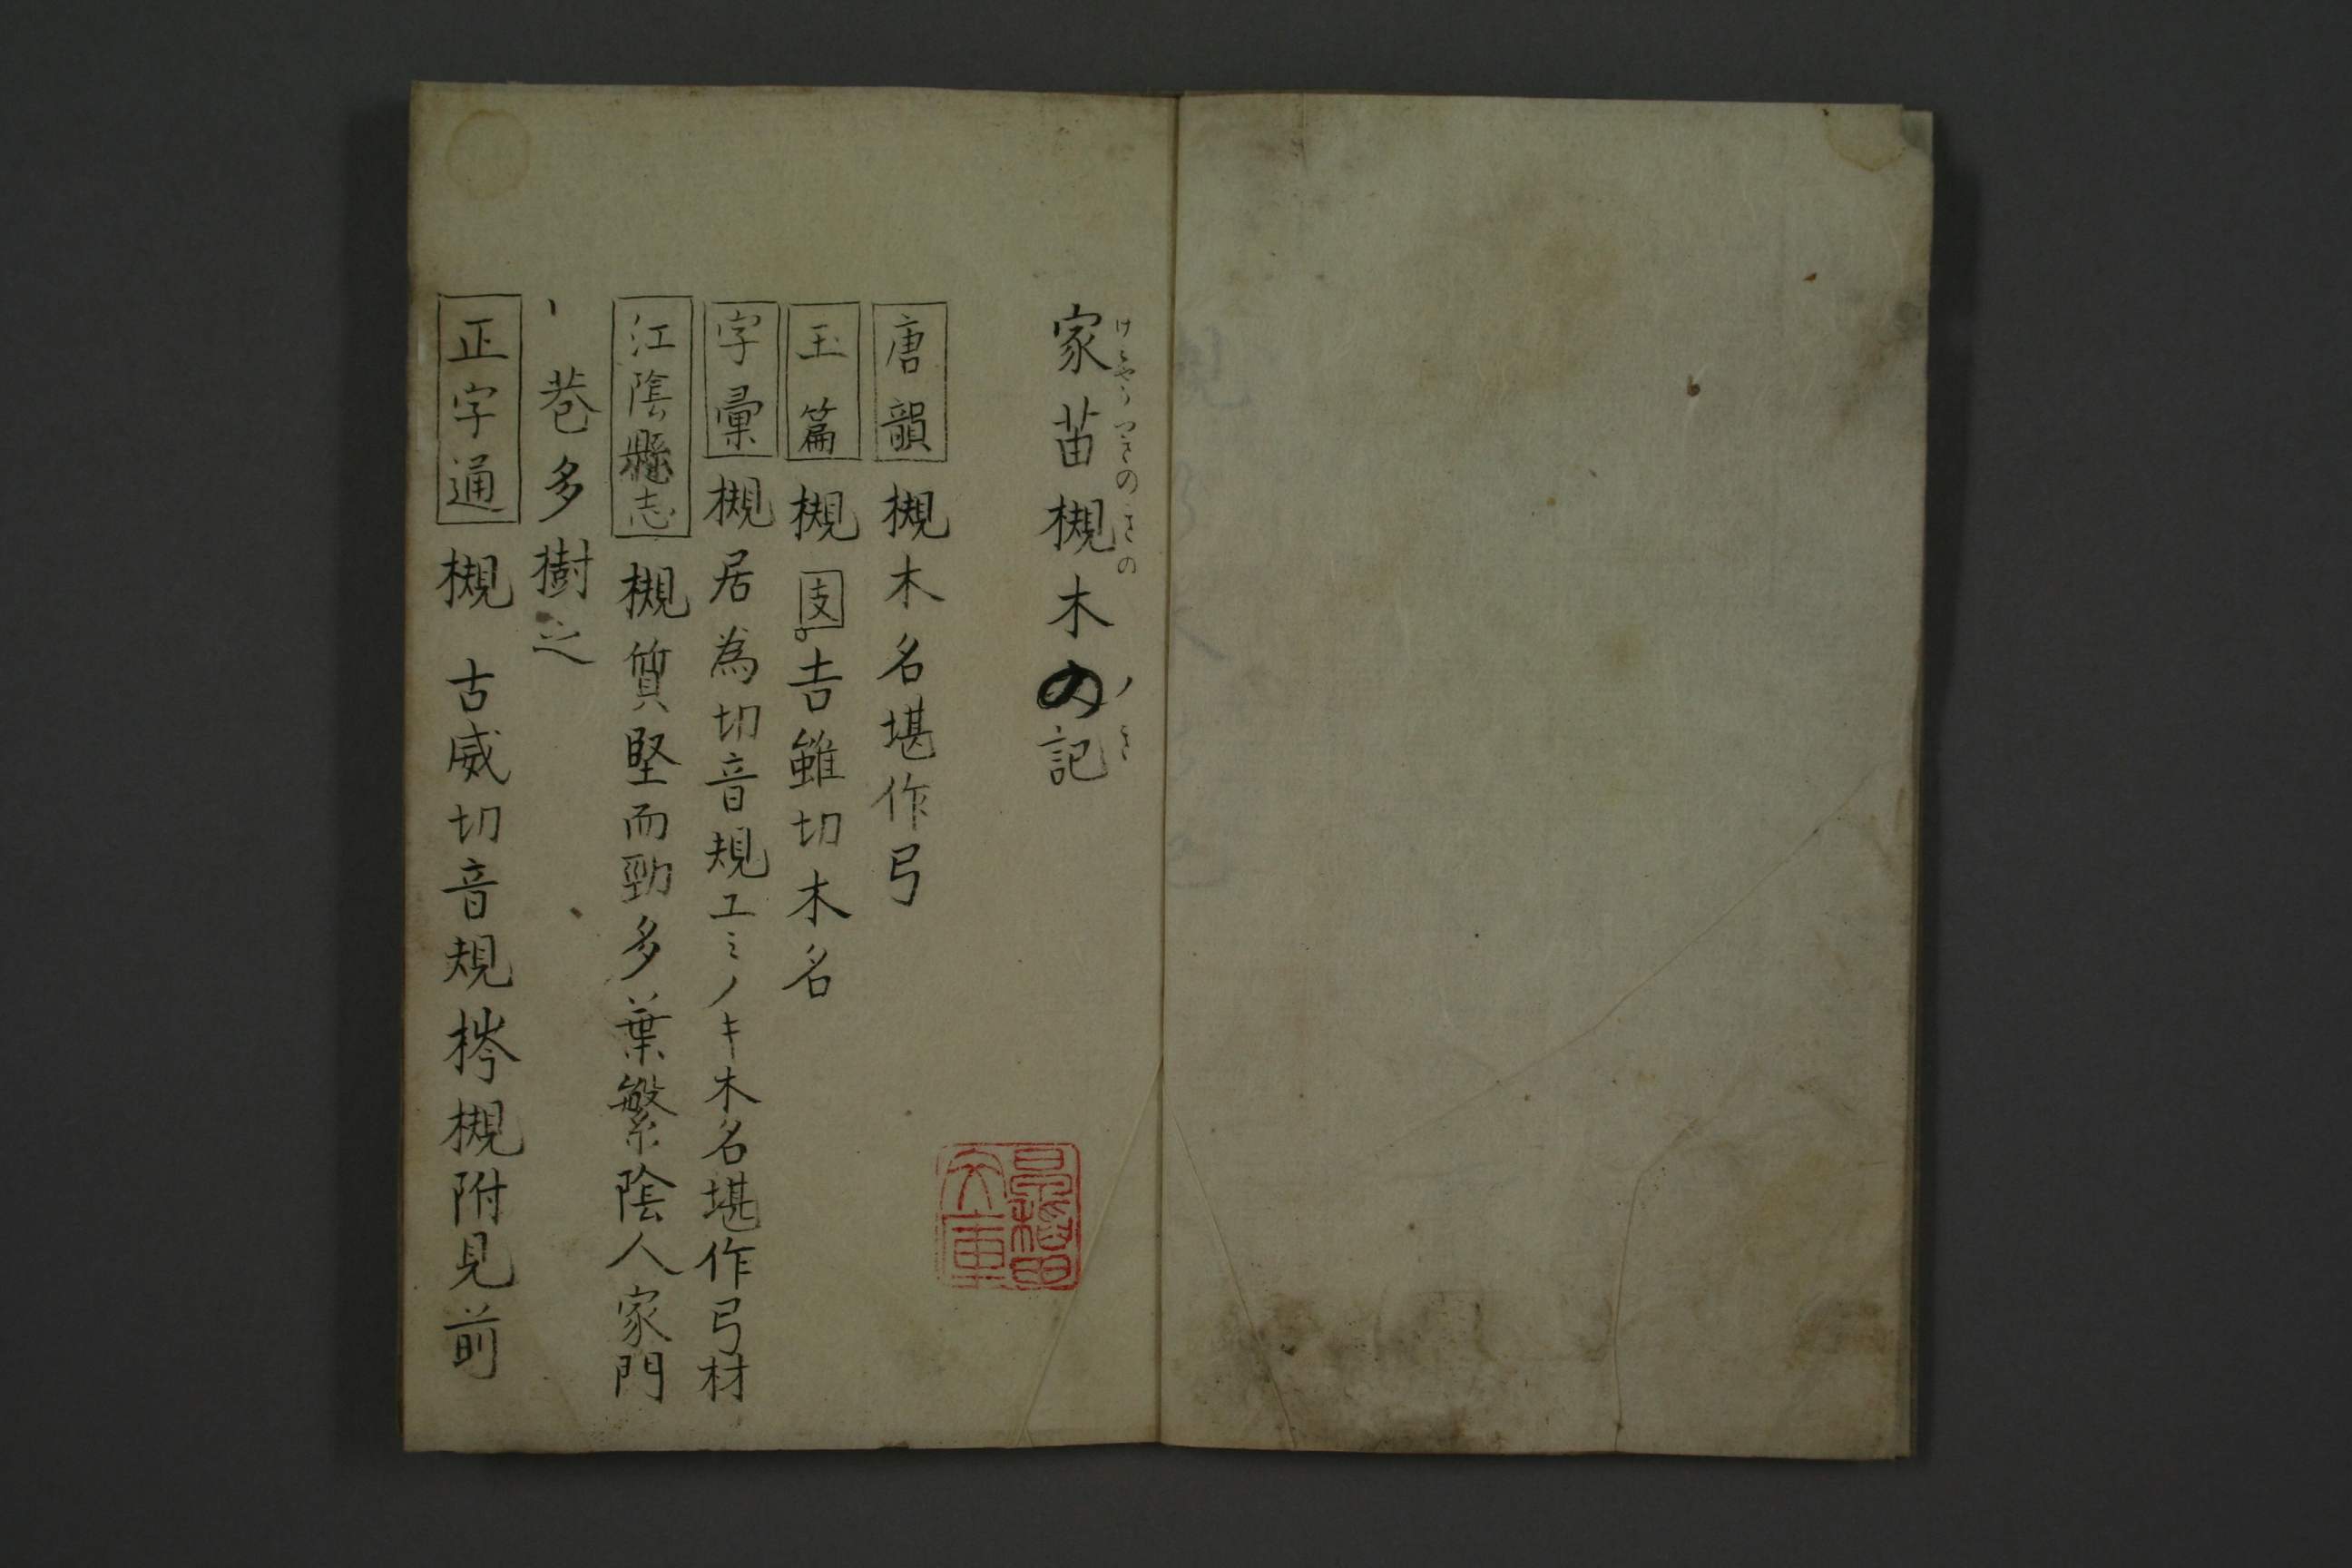 家苗槻木の記
唐韻 槻木名堪作弓
玉篇 槻 支 吉雖切木名
字彙 槻居為切音規エミノキ木名堪作弓材
江陰縣志 槻質堅而勁多葉繁陰人家門
巷多樹之
正字通 槻 古威切音規梣槻附見前